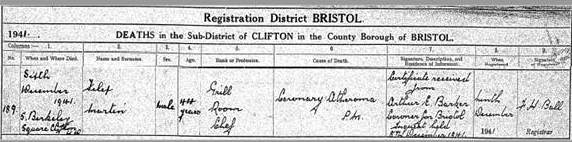 Registration District BRISTOL.
1941. DEATHS in the Sub-District of CLIFTON in the County Borough of BRISTOL.
Columns:— 1. 2. 3. 4. 5. 6. 7. 8. 9.
No. When and Where Died. Name and Surname. Sex. Age. Rank or Profession. Cause of Death. Signature, Description, and Residence of Informant. When Registered. Signature of Registrar.
Sixth
December
1941.
5, Berkeley
Square Clifton
189
Martin
Male
44
years
Grill
Room
Chef
Coronary Atheroma
P.M.
Certificate received
from
Arthur E. Barker
Coroner for Bristol
Inquest held
8th December 1941.
Ninth
December
1941
F. H. Ball
Registrar